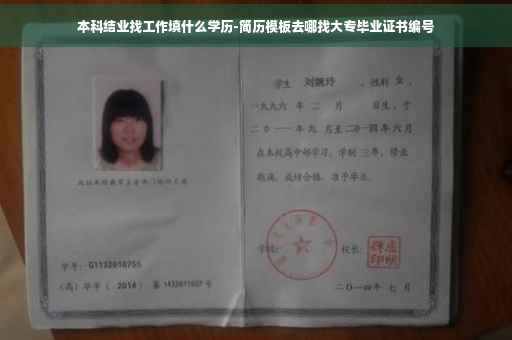 本科结业找工作填什么学历-简历模板去哪找大专毕业证书编号
学生 刘婉玲 ，性别 女 ，
一九九六 年 二 月 日生，于
二〇一一年九 月至二〇一四年 六 月
在本校高中部学习，学制 三年，修业
期满，成绩合格，准予毕业。
学号：G1132010755
（高）毕字（ 2014 ）第 1432011027 号
学校：
校长：
二〇一四年 七 月